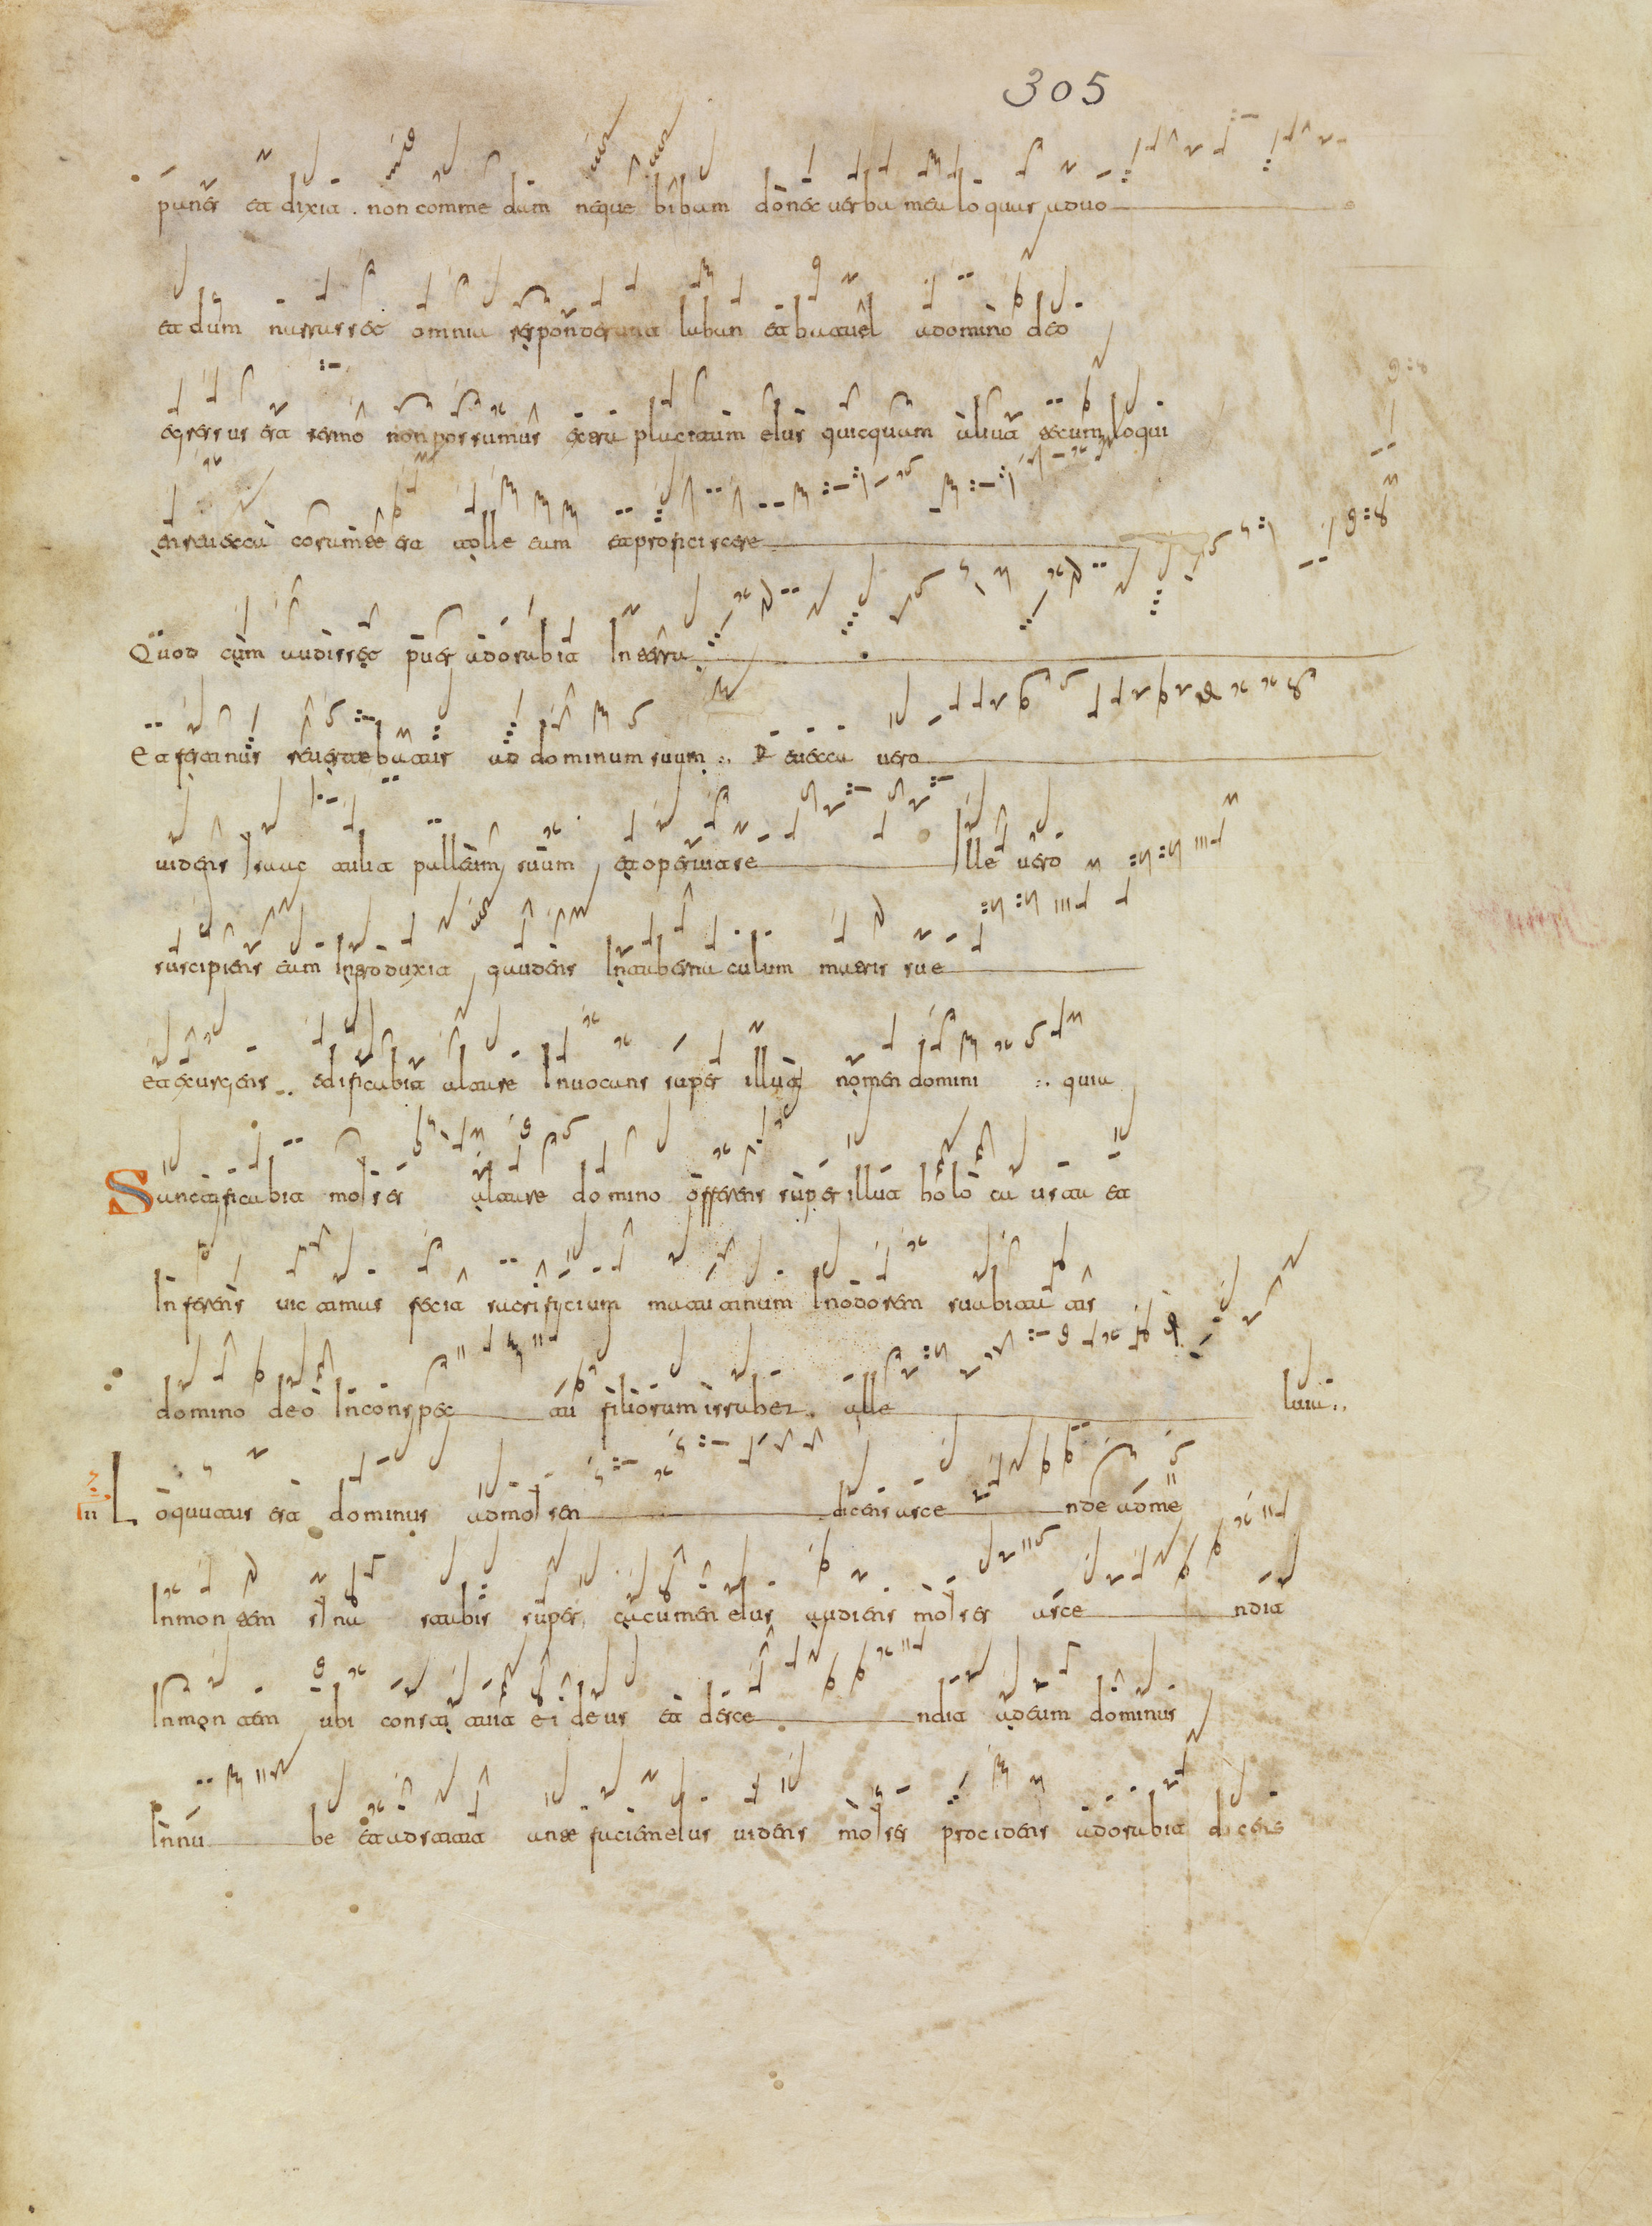 305
panes et dixit . non commedam neque bibam donec uerba mea loquar ad uo
et dum narrasset omnia responderunt laban et batuel a domino deo
egressus est sermo non possumus extra placitum eius quicquam aliut tecum loqui
en rebecca coram te est tolle eam et proficiscere
Quod cum audisset puer adorabit In terra
Et festinus reuertebatur ad dominum suum :. Rebecca uero
uidens Isaac tulit palleum suum et operuit se Ille uero
suscipiens eam Introduxit gaudens In tabernaculum matris sue
et exurgens :. edificabit altare Inuocans super illut nomen domini :. quia
Sanctificabit moIses altare domino offerens super illut holocausta et
Inferens uictimas fecit sacrificium matutinum In odorem suabitatis
domino deo In conspectu filiorum israhel . alle luia :.
II Loquutus est dominus ad moIsen dicens asce nde ad me
In montem sIna stabis super cacumen eius audiens moIses asce ndit
In montem ubi constituit ei deus et desce ndit ad eum dominus
In nu be et adstitit ante faciem eius uidens moIses procidens adorabit dicens